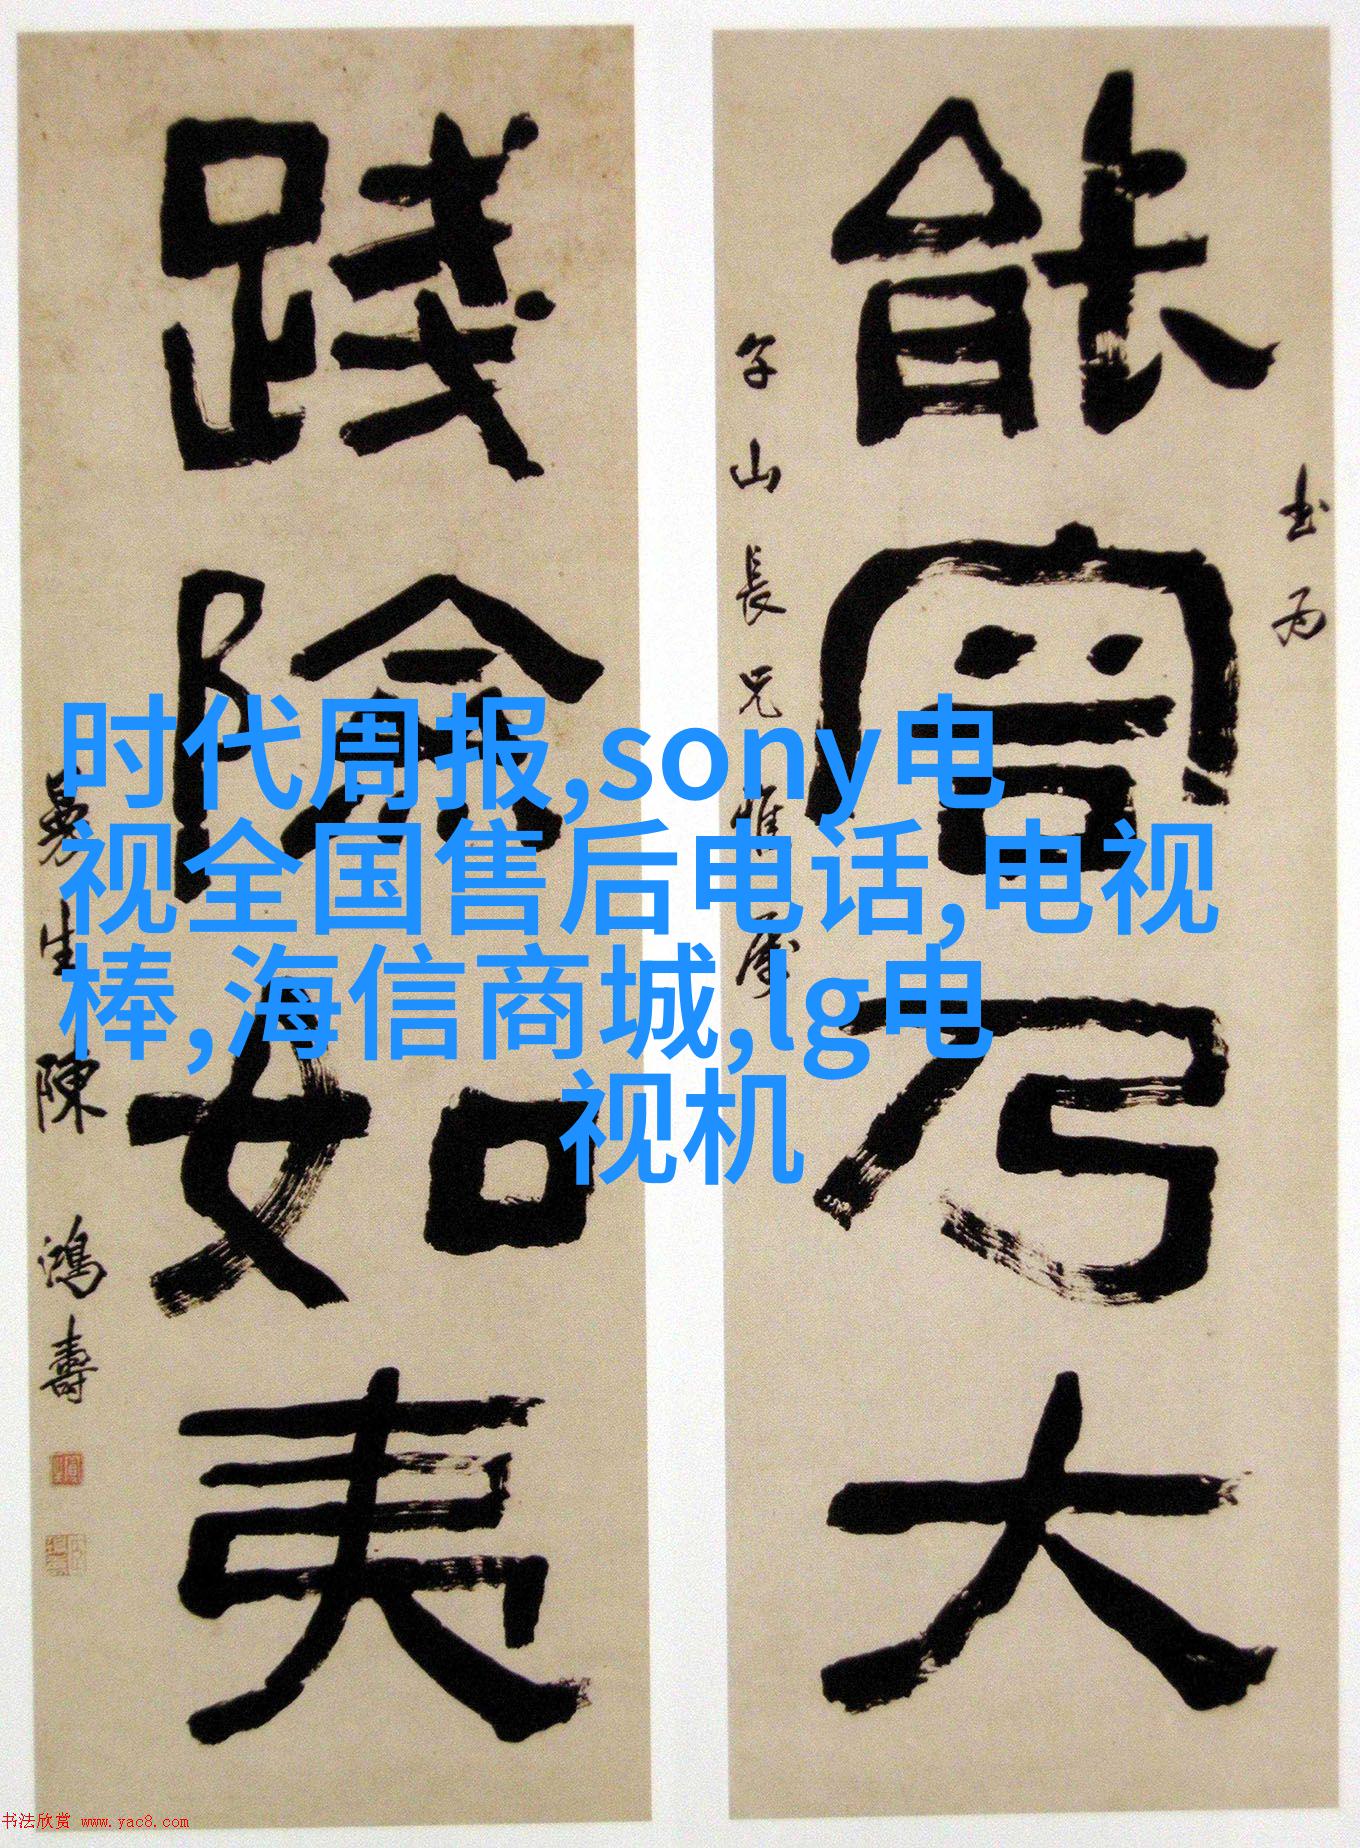 能
乃
大
書為
午山長兄雅屬
踐險如夷
曼生陳鴻壽
时代周报,sony电
视全国售后电话,电视
棒,海信商城,lg电
视机
书法欣赏 www.yac8.com